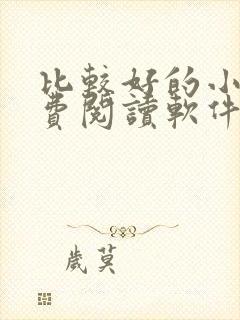 比較好的小
費閱讀軟件
歲莫